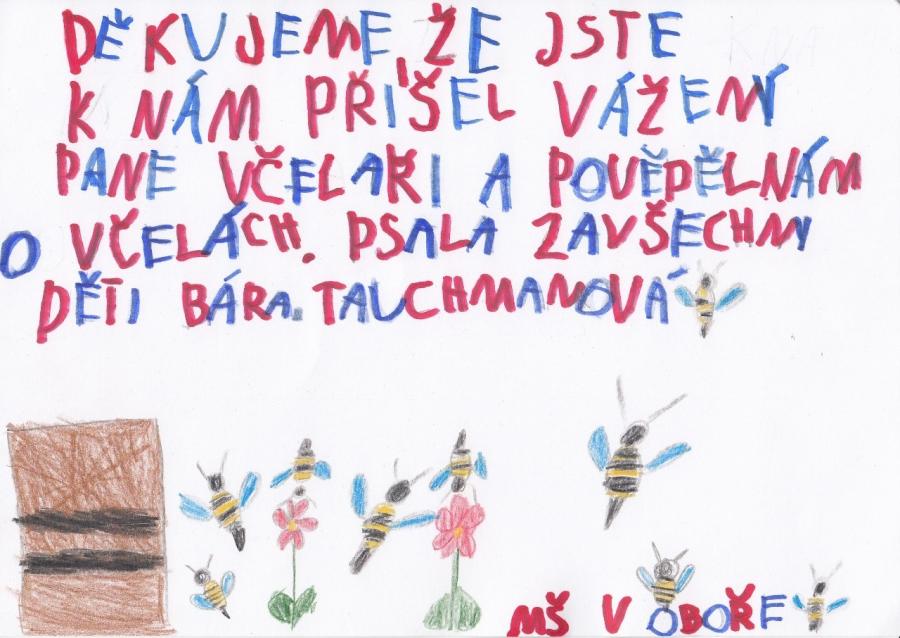 DĚKUJEME ŽE JSTE
K NÁM PŘIŠEL VÁŽENÝ
PANE VČELAŘI A POVĚDĚLNÁM
O VČELÁCH. PSALA ZAVŠECHNY
DĚTI BÁRA. TAUCHMANOVÁ
MŠ V OBOŘE